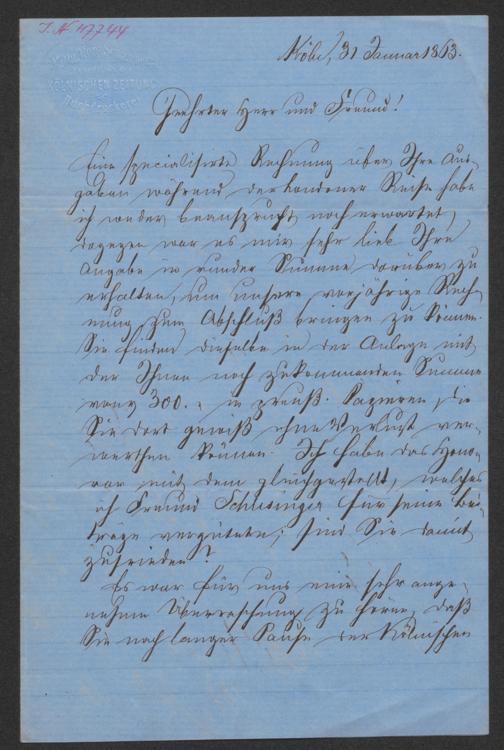 I. N. 47744
KÖLNISCHEN ZEITUNG
Köln, 31 Januar 1863.
Geehrter Herr und Freund!
Eine specialisirte Rechnung über Ihre Aus-
gaben während der Londoner Reise habe
ich weder beansprucht noch erwartet,
dagegen war es mir sehr lieb Ihre
Angabe in runder Summe darüber zu
erhalten, um unsere vorjährige Rech-
nung zum Abschluß bringen zu können.
Sie finden dieselbe in der Anlage mit
der Ihnen noch zukommenden Summe
von 300. in preuß. Papieren, die
Sie dort gewiß ohne Verlust ver-
werthen können. Ich habe das Hono-
rar mit dem gleichgestellt, welches
ich Freund Schlesinger für seine Bei-
träge vergütete; sind Sie damit
zufrieden?
Es war für uns eine sehr ange-
nehme Überraschung zu hören, daß
Sie nach langer Pause der Kölnischen